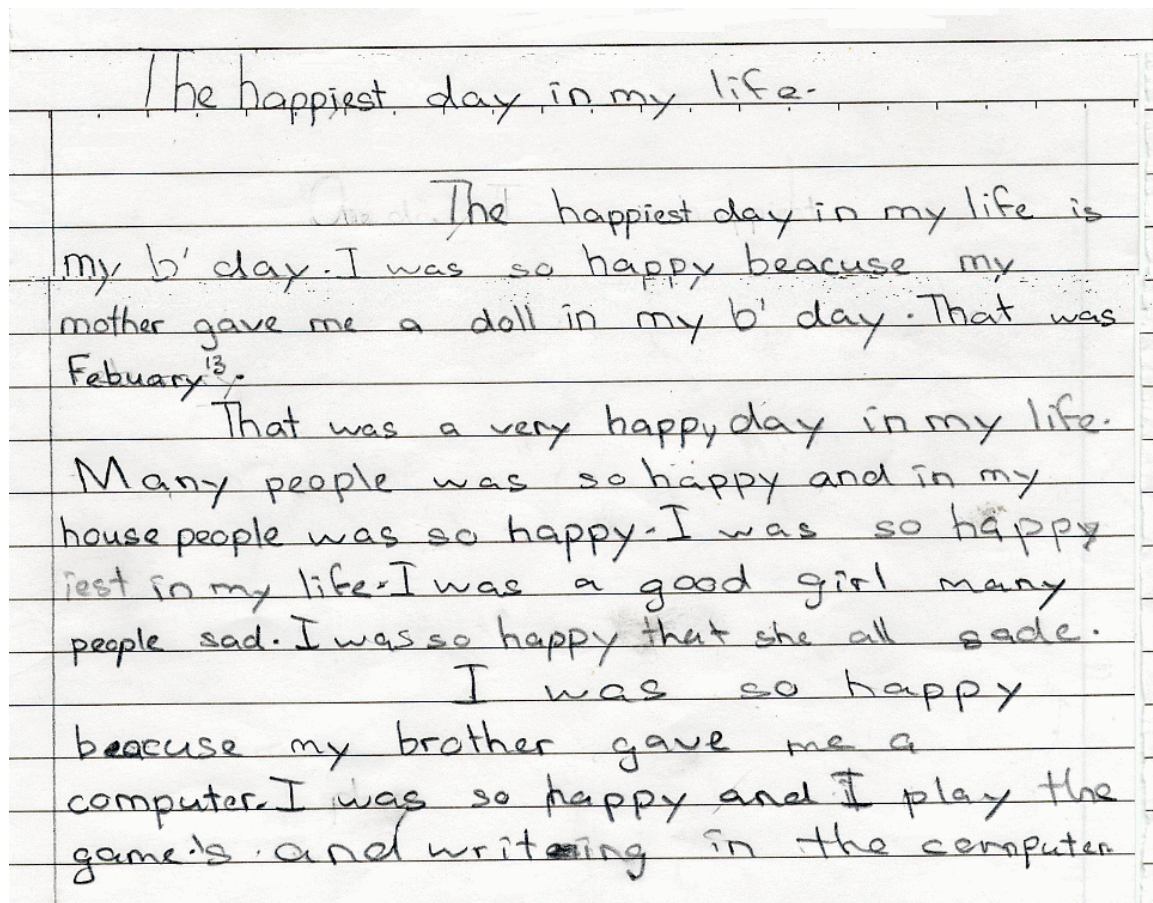 The happiest day in my life.
The happiest day in my life is
my b'day. I was so happy beacuse my
mother gave me a doll in my b'day. That was
Febuary 13.
That was a very happy day in my life.
Many people was so happy and in my
house people was so happy. I was so happy
iest in my life. I was a good girl many
people sad. I was so happy that she all sade.
I was so happy
beacuse my brother gave me a
computer. I was so happy and I play the
game's and writing in the computer